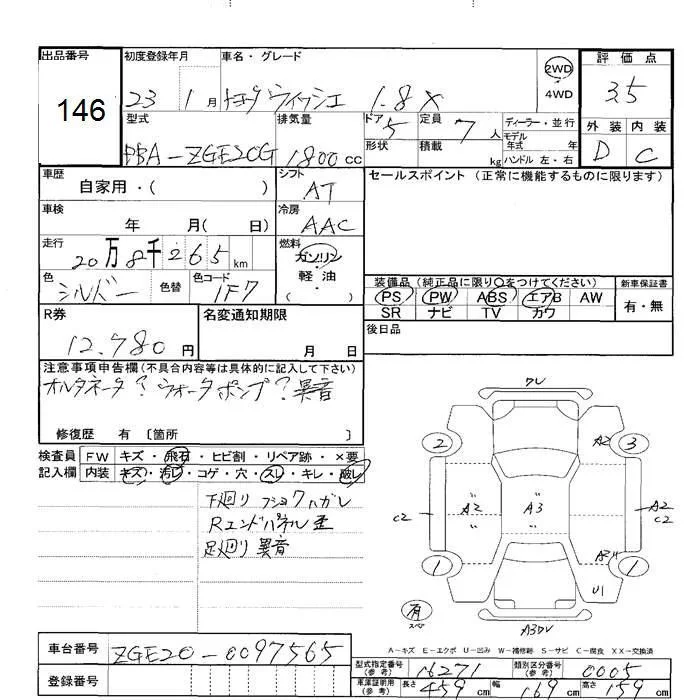 出品番号 初度登録年月 車名・グレード 2WD 評価点
146 23 1月 トヨタ ウイッシュ 1.8X 4WD 3.5
型式 排気量 ドア 5 定員 7人 ディーラー・並行 外装 内装
モデル年式 年
DBA-ZGE20G 1800cc 形状 積載 kg ハンドル 左・右 D C
車歴 シフト セールスポイント(正常に機能するものに限ります)
自家用・( ) AT
車検 冷房
年 月( 日) AAC
走行 燃料
20万8千265km ガソリン
色 色替 色コード 軽油 装備品(純正品に限り○をつけてください) 新車保証書
シルバー 1F7 ( ) PS PW ABS エアB AW 有・無
SR ナビ TV カワ
R券 名変通知期限 後日品
12,780円 月 日
注意事項申告欄(不具合内容等は具体的に記入して下さい)
オルタネータ?ウォータポンプ?異音
修復歴 有 〔箇所 〕
検査員 FW キズ・飛石・ヒビ割・リペア跡・×要
記入欄 内装 キズ・汚レ・コゲ・穴・スレ・キレ・破レ
下廻り フショクハガレ
Rエンドパネル歪
足廻り異音
クレ
2 A2 3
C2 A2 A3 A2
C2
1 A2 1
U1
有
スペア
A3 DV
A-キズ E-エクボ U-凹み W-補修跡 S-サビ C-腐食 XX-交換済
車台番号 ZGE20-0097565
型式指定番号(参考) 16271 類別区分番号(参考) 0005
登録番号 車庫証明用(参考) 長さ 459cm 幅 169cm 高さ 159cm